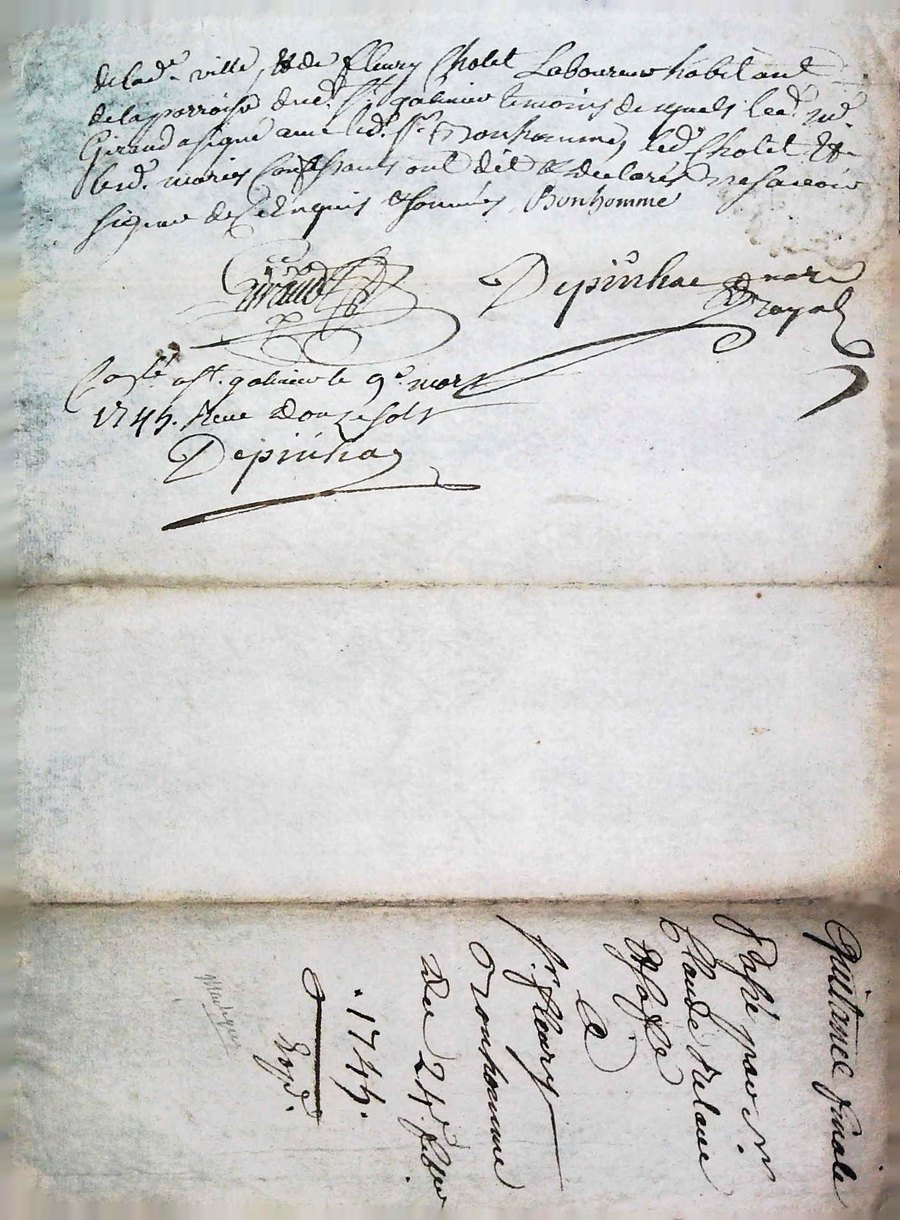 delad.e ville, & de fleury Cholet Laboureur habitant
dela parroisse dud. St galmier temoins desquels led. Me
Giraud a signé avec led. Sr. Bonhomme, led. Cholet &
lesd. mariés Confessants ont dit & declarés ne savoir
signer de ce Enquis & sommés, Bonhomme
Giraud
Depinhac nore
Royal
a St. galmier le 9e. mars
1745. Reçeu douze sols
Depinhac
Quittance finale
Passé par
Claude
&
A
Sr. fleury
Bonhomme
du 24e.
1745.
Exp.